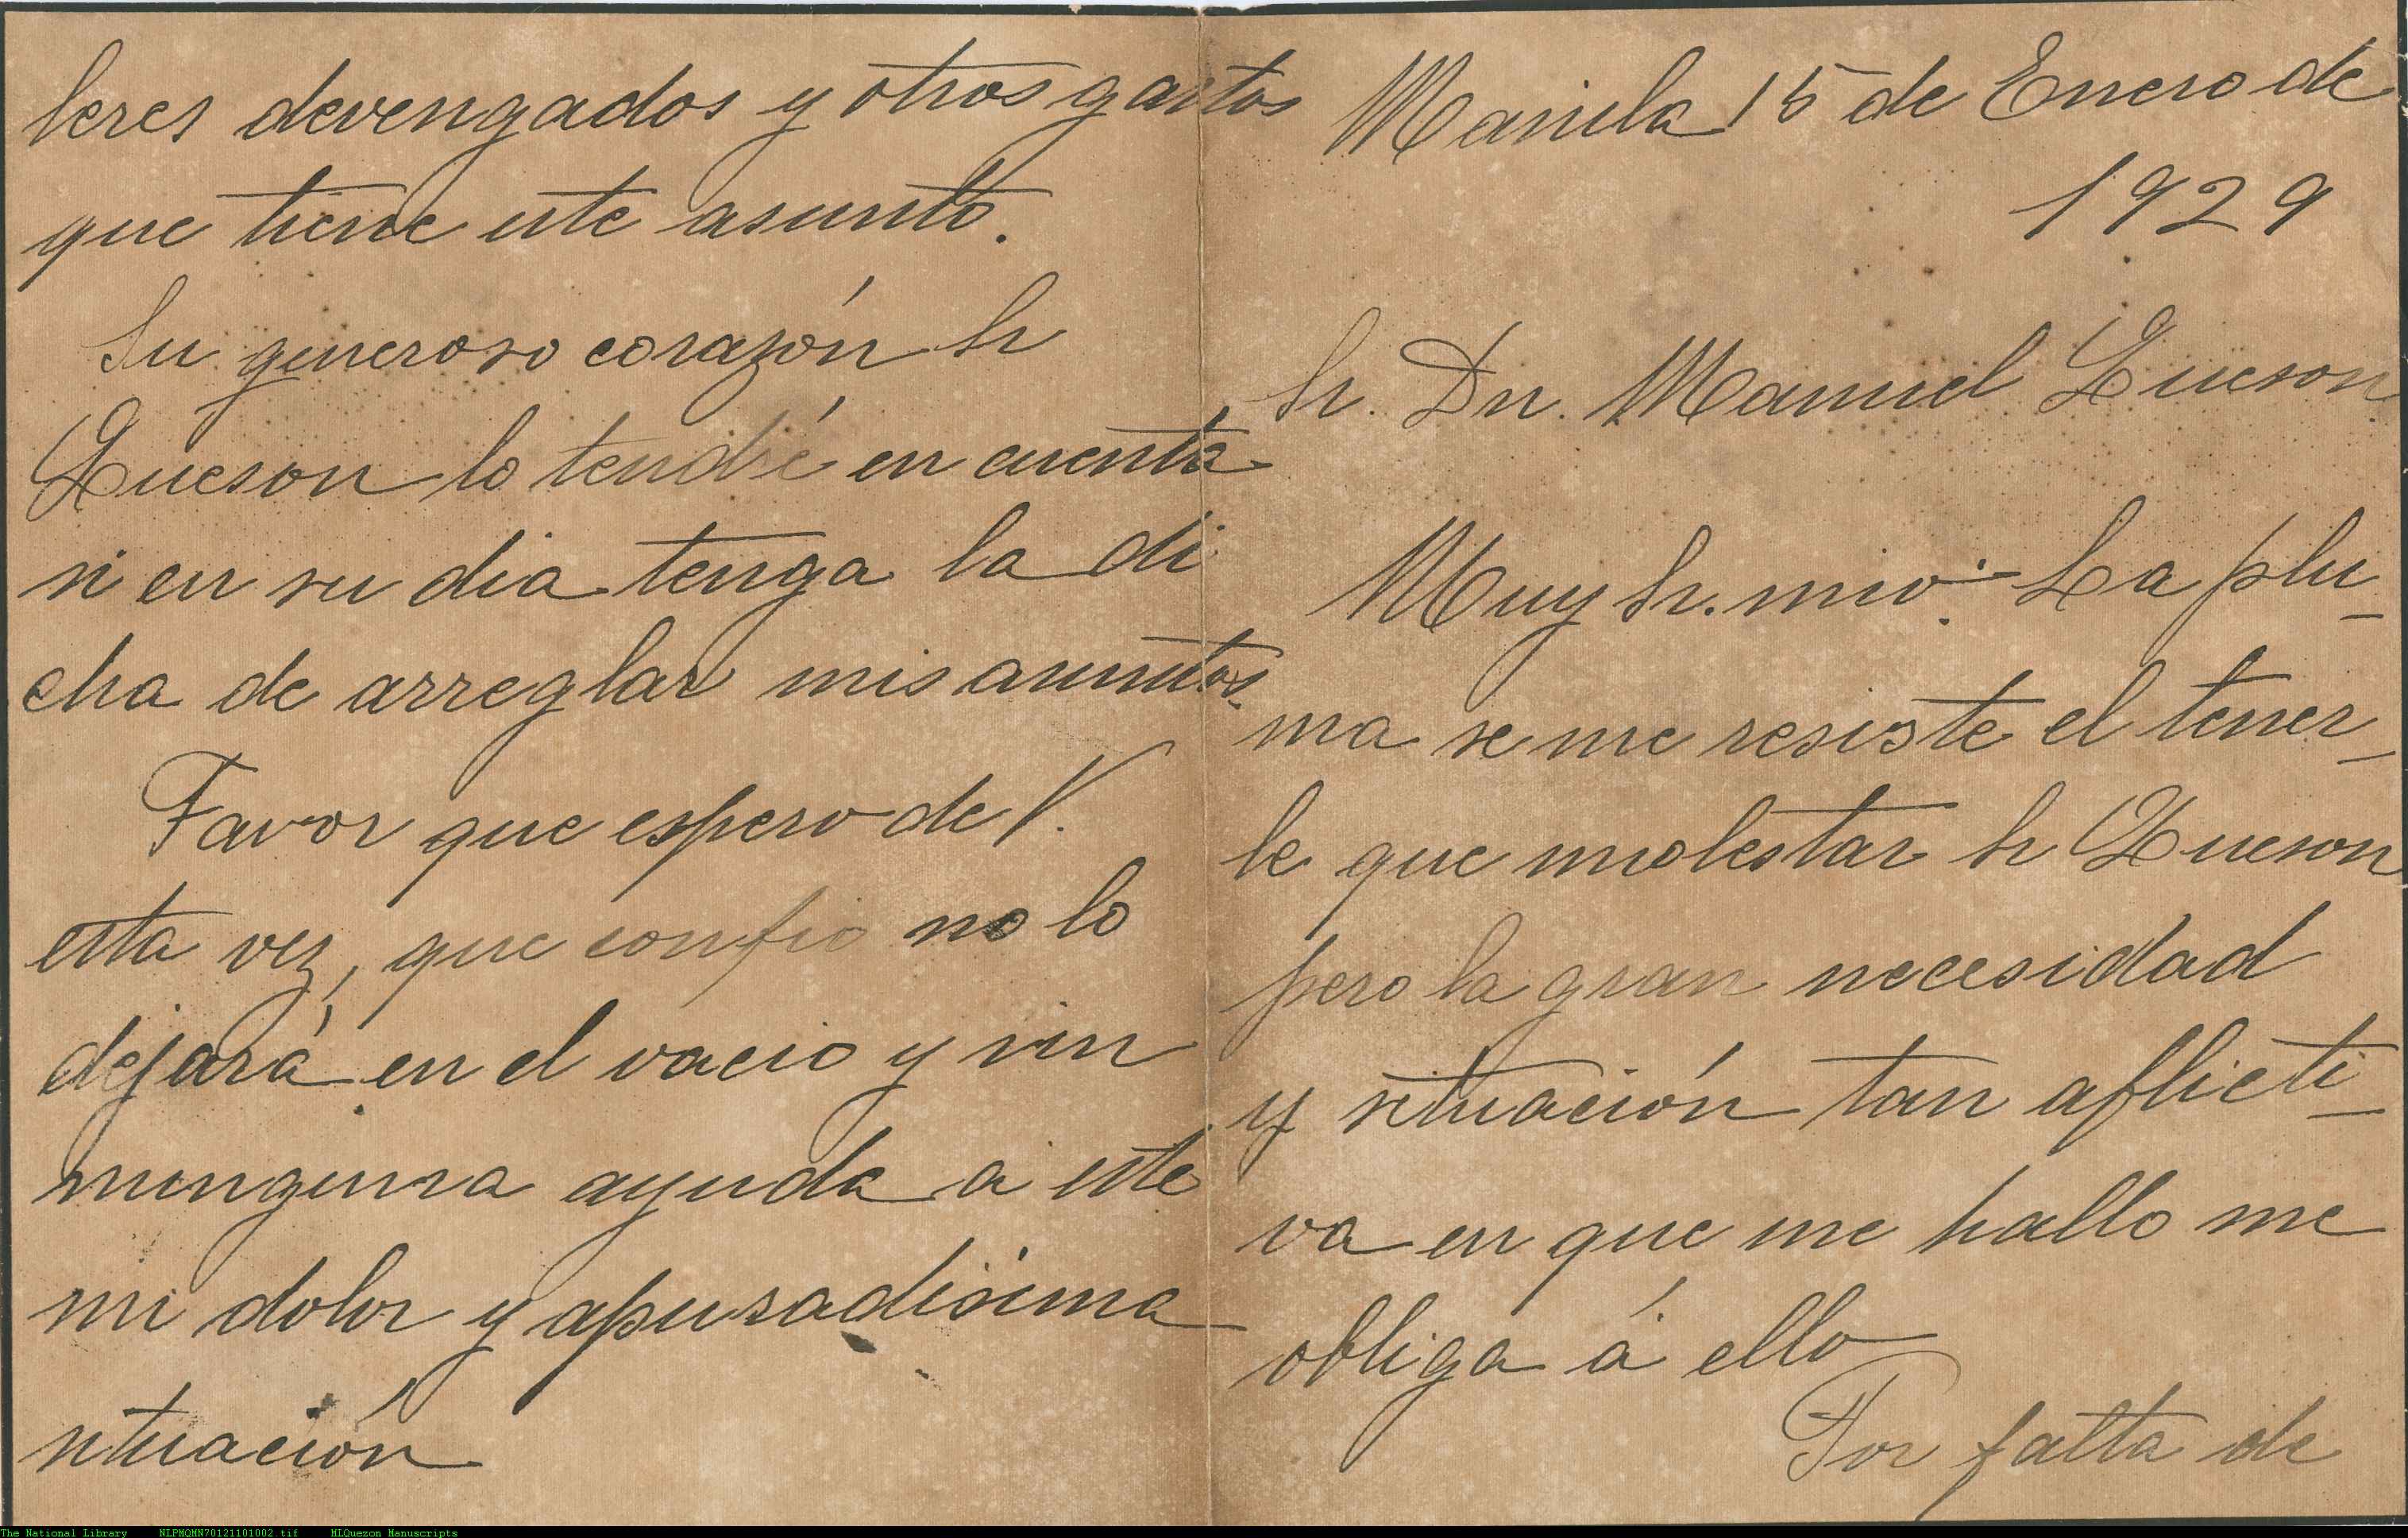 Manila 15 de Enero de
1929
Sr. Dn. Manuel Queson
Muy Sr. mio: La plu_
ma se me resiste el tener_
le que molestar Sr Queson
pero la gran necesidad
y situación tan aflicti_
va en que me hallo me
obliga á ello
Por falta de
leres devengados y otros gastos
que tiene este asunto.
Su generoso corazón Sr
Queson lo tendré en cuenta
si en su dia tenga la di
cha de arreglar mis asuntos.
Favor que espero de V.
esta vez, que confio no lo
dejará en el vacio y sin
ninguna ayuda a este
mi dolor y apuradisima
situación
The National Library NLPMQMN70121101002.tif MLQuezon Manuscripts